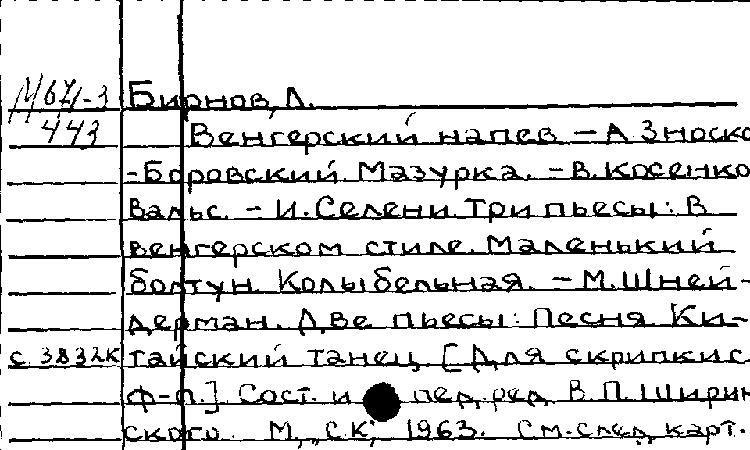 М64-3 Бирнов, Л.
443 Венгерский напев. – А Зноско
-Боровский. Мазурка. – В. Косенко
Вальс. – И. Селени. Три пьесы: В
венгерском стиле. Маленький
болтун. Колыбельная. – М. Шней-
дерман. Две пьесы: Песня. Ки-
с 3832к тайский танец. [Для скрипки с
ф-п.] Сост. и пед. ред. В. П. Ширин
ского. М., "С.К", 1963. См. след. карт.